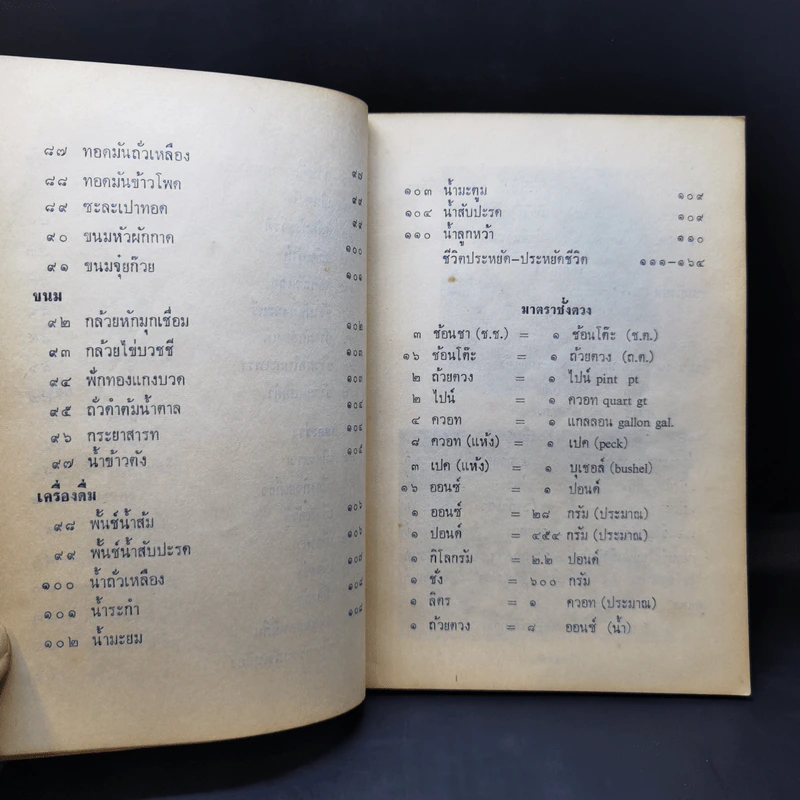 ๘๗ ทอดมันถั่วเหลือง ๙๗
๘๘ ทอดมันข้าวโพด ๙๙
๘๙ ซะละเปาทอด ๙๙
๙๐ ขนมหัวผักกาด ๑๐๐
๙๑ ขนมจุ๋ยก๊วย ๑๐๑
ขนม
๙๒ กล้วยหักมุกเชื่อม ๑๐๒
๙๓ กล้วยไข่บวชชี ๑๐๓
๙๔ ฟักทองแกงบวด ๑๐๓
๙๕ ถั่วดำต้มน้ำตาล ๑๐๔
๙๖ กระยาสารท ๑๐๔
๙๗ น้ำข้าวตัง ๑๐๕
เครื่องดื่ม
๙๘ พั้นช์น้ำส้ม ๑๐๖
๙๙ พั้นช์น้ำสับปะรด ๑๐๖
๑๐๐ น้ำถั่วเหลือง ๑๐๘
๑๐๑ น้ำระกำ ๑๐๘
๑๐๒ น้ำมะยม
๑๐๓ น้ำมะตูม ๑๐๙
๑๐๔ น้ำสับปะรด ๑๐๙
๑๑๐ น้ำลูกหว้า ๑๑๐
ชีวิตประหยัด-ประหยัดชีวิต ๑๑๑-๑๖๔
มาตราชั่งตวง
๓ ช้อนชา (ช.ช.) = ๑ ช้อนโต๊ะ (ช.ต.)
๑๖ ช้อนโต๊ะ = ๑ ถ้วยตวง (ถ.ต.)
๒ ถ้วยตวง = ๑ ไปน์ pint pt
๒ ไปน์ = ๑ ควอท quart gt
๔ ควอท = ๑ แกลลอน gallon gal.
๘ ควอท (แห้ง) = ๑ เปค (peck)
๓ เปค (แห้ง) = ๑ บุเชอล์ (bushel)
๑๖ ออนซ์ = ๑ ปอนด์
๑ ออนซ์ = ๒๘ กรัม (ประมาณ)
๑ ปอนด์ = ๔๕๔ กรัม (ประมาณ)
๑ กิโลกรัม = ๒.๒ ปอนด์
๑ ชั่ง = ๖๐๐ กรัม
๑ ลิตร = ๑ ควอท (ประมาณ)
๑ ถ้วยตวง = ๘ ออนซ์ (น้ำ)